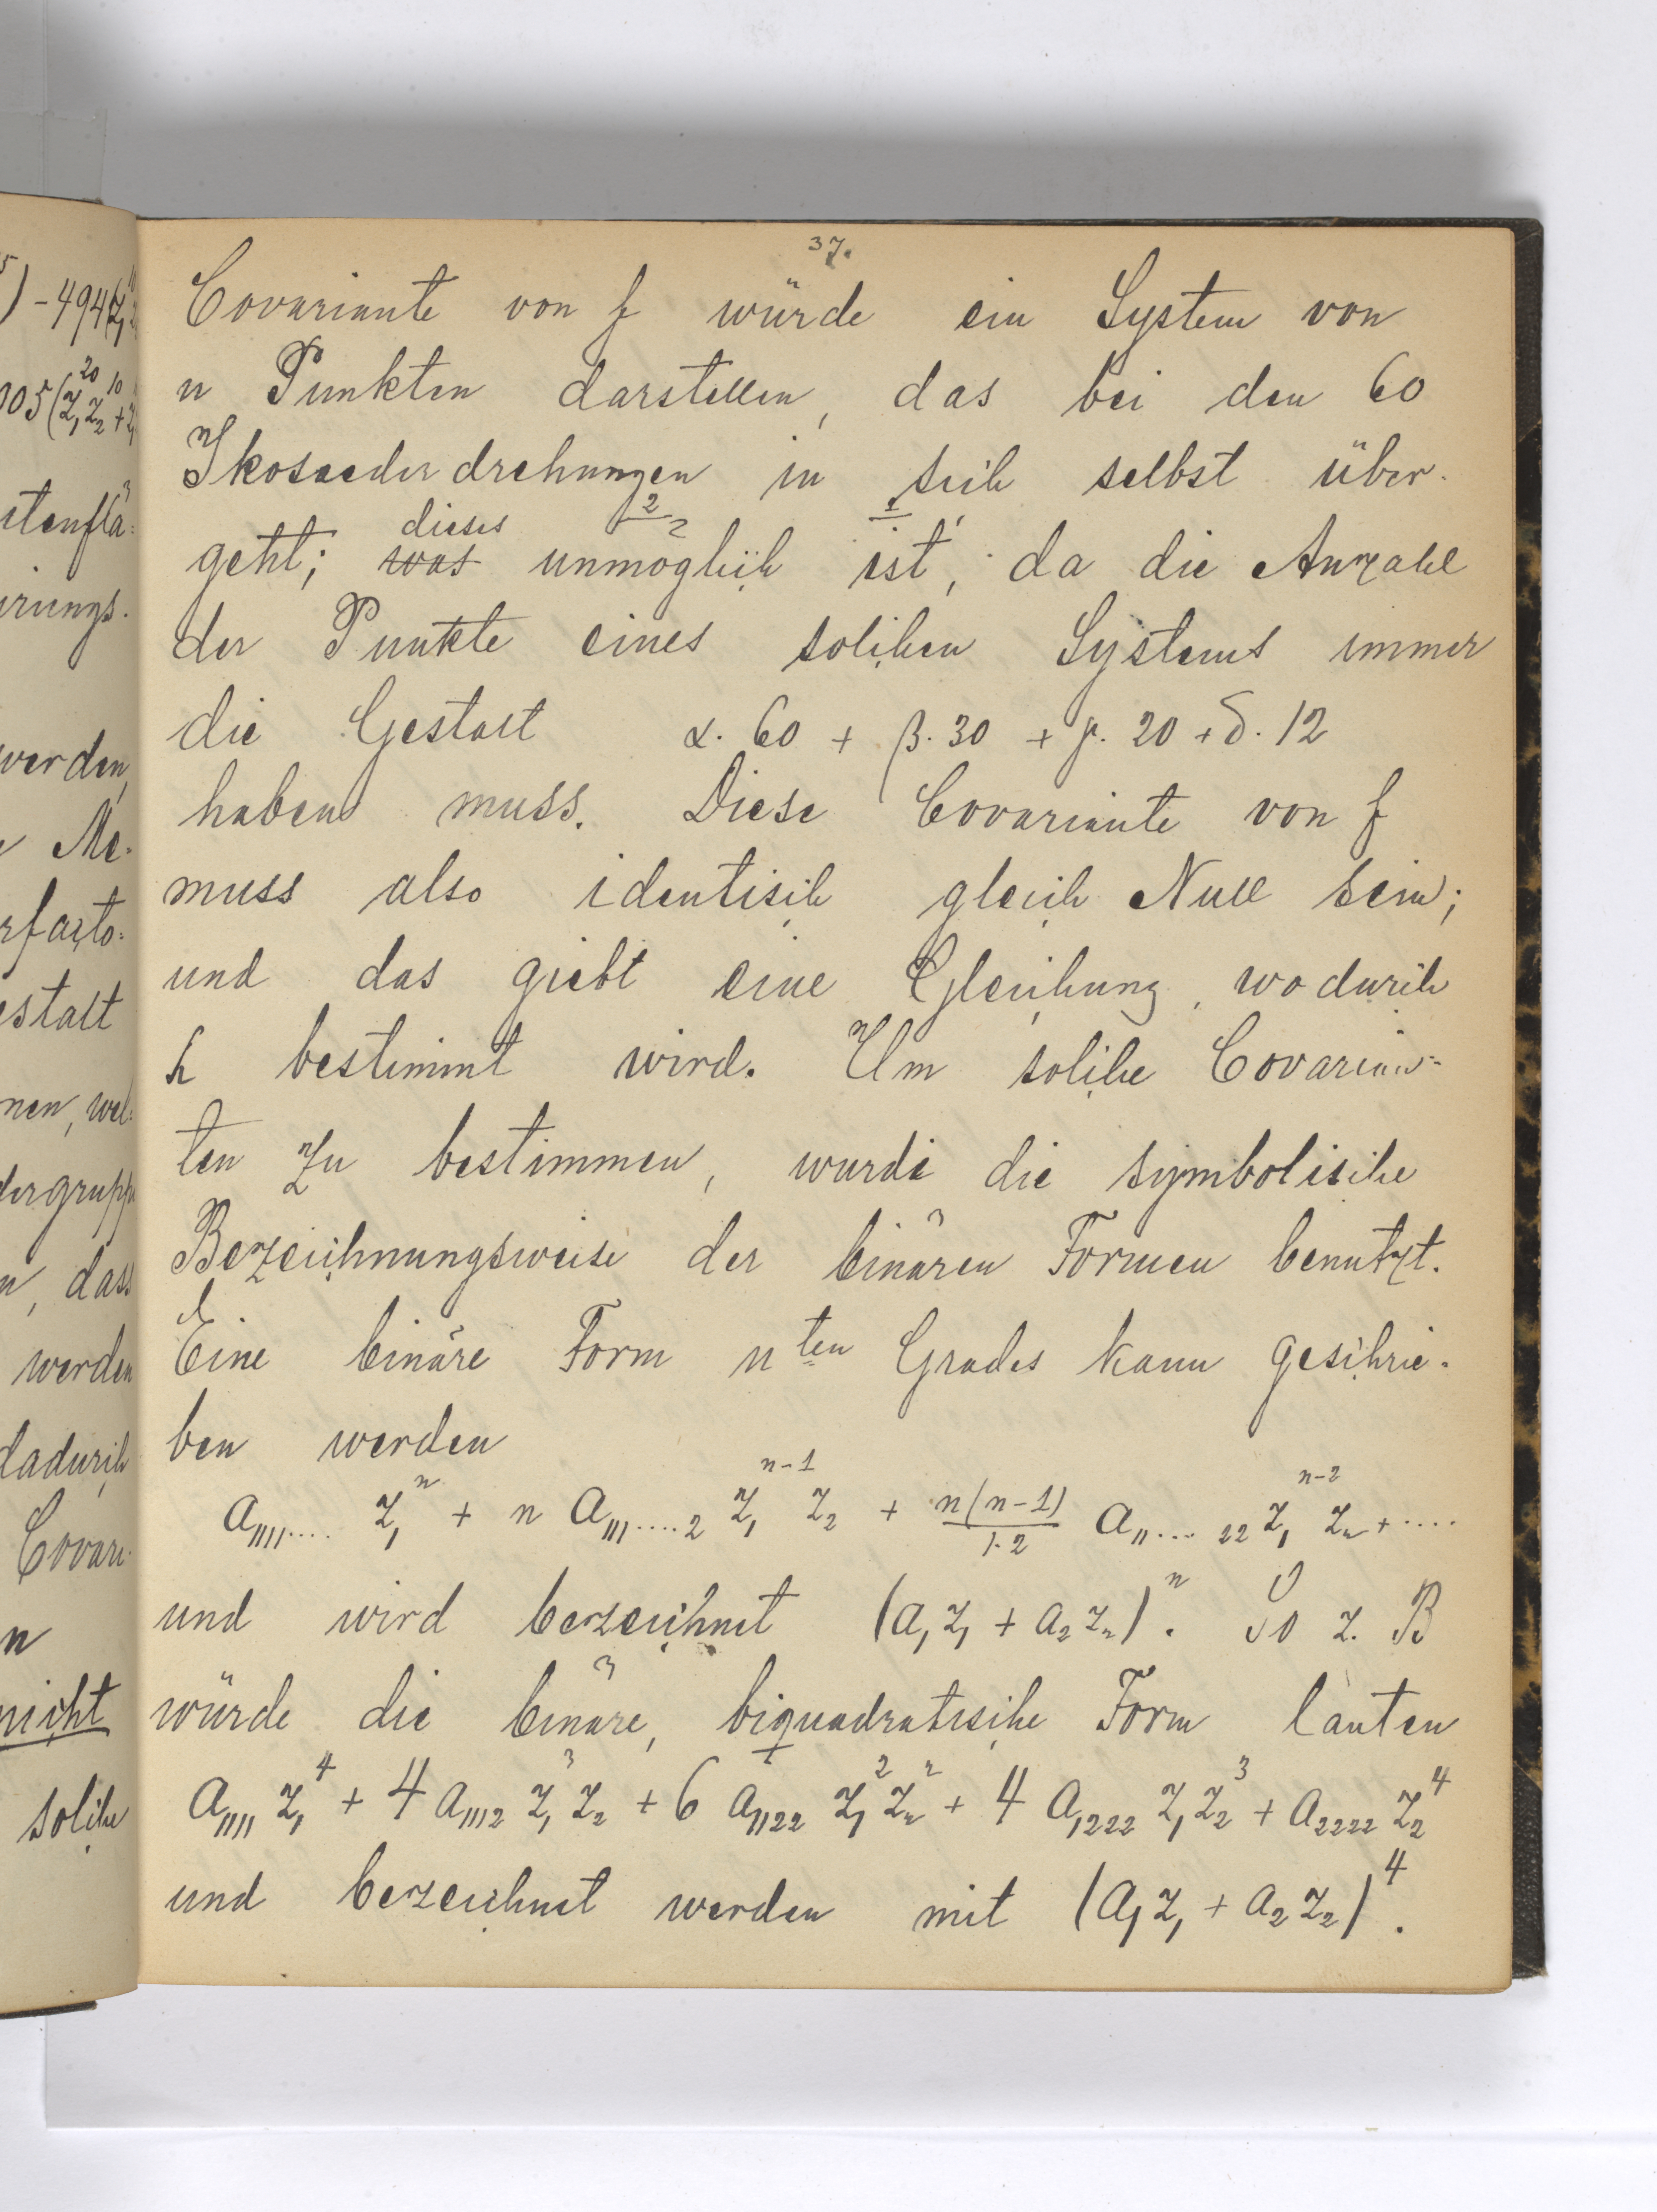 37.
Covariante von f würde ein System von
n Punkten darstellen, das bei den 60
Ikosaederdrehungen in sich selbst über-
geht; was dieses unmöglich 2 ist 1, da die Anzahl
der Punkte eines solchen Systems immer
die Gestalt α. 60 + β. 30 + γ. 20 + δ. 12
haben muss. Diese Covariante von f
muss also identisch gleich Null sein;
und das giebt eine Gleichung, wodurch
h bestimmt wird. Um solche Covarian-
ten zu bestimmen, wurde die symbolische
Bezeichnungsweise der binären Formen benutzt.
Eine binäre Form n ten Grades kann geschrie-
ben werden
a₁₁₁₁.... z₁ⁿ + n a₁₁₁....₂ z₁ⁿ⁻¹ z₂ + n(n-1)/1.2 a₁₁...₂₂ z₁ⁿ⁻² z₂ + ....
und wird bezeichnet (a₁z₁ + a₂z₂)ⁿ. So z. B
würde die binäre, biquadratische Form lauten
a₁₁₁₁ z₁⁴ + 4 a₁₁₁₂ z₁³ z₂ + 6 a₁₁₂₂ z₁² z₂² + 4 a₁₂₂₂ z₁ z₂³ + a₂₂₂₂ z₂⁴
und bezeichnet werden mit (a₁z₁ + a₂z₂)⁴.